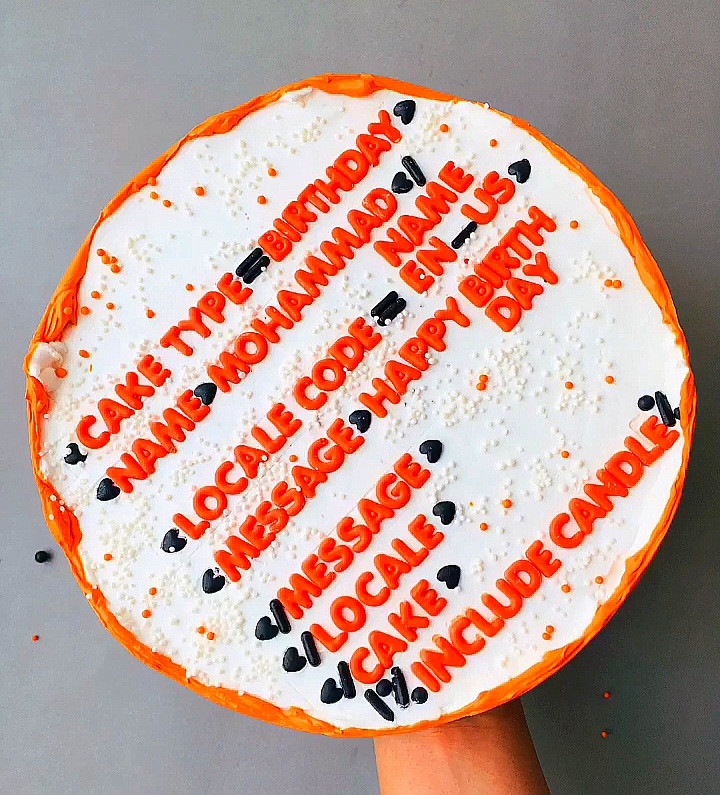 CAKE TYPE = BIRTHDAY
NAME MOHAMMAD / NAME
LOCALE CODE = EN_US
MESSAGE HAPPY BIRTH DAY
/ MESSAGE
/ LOCALE
/ CAKE
INCLUDE CANDLE